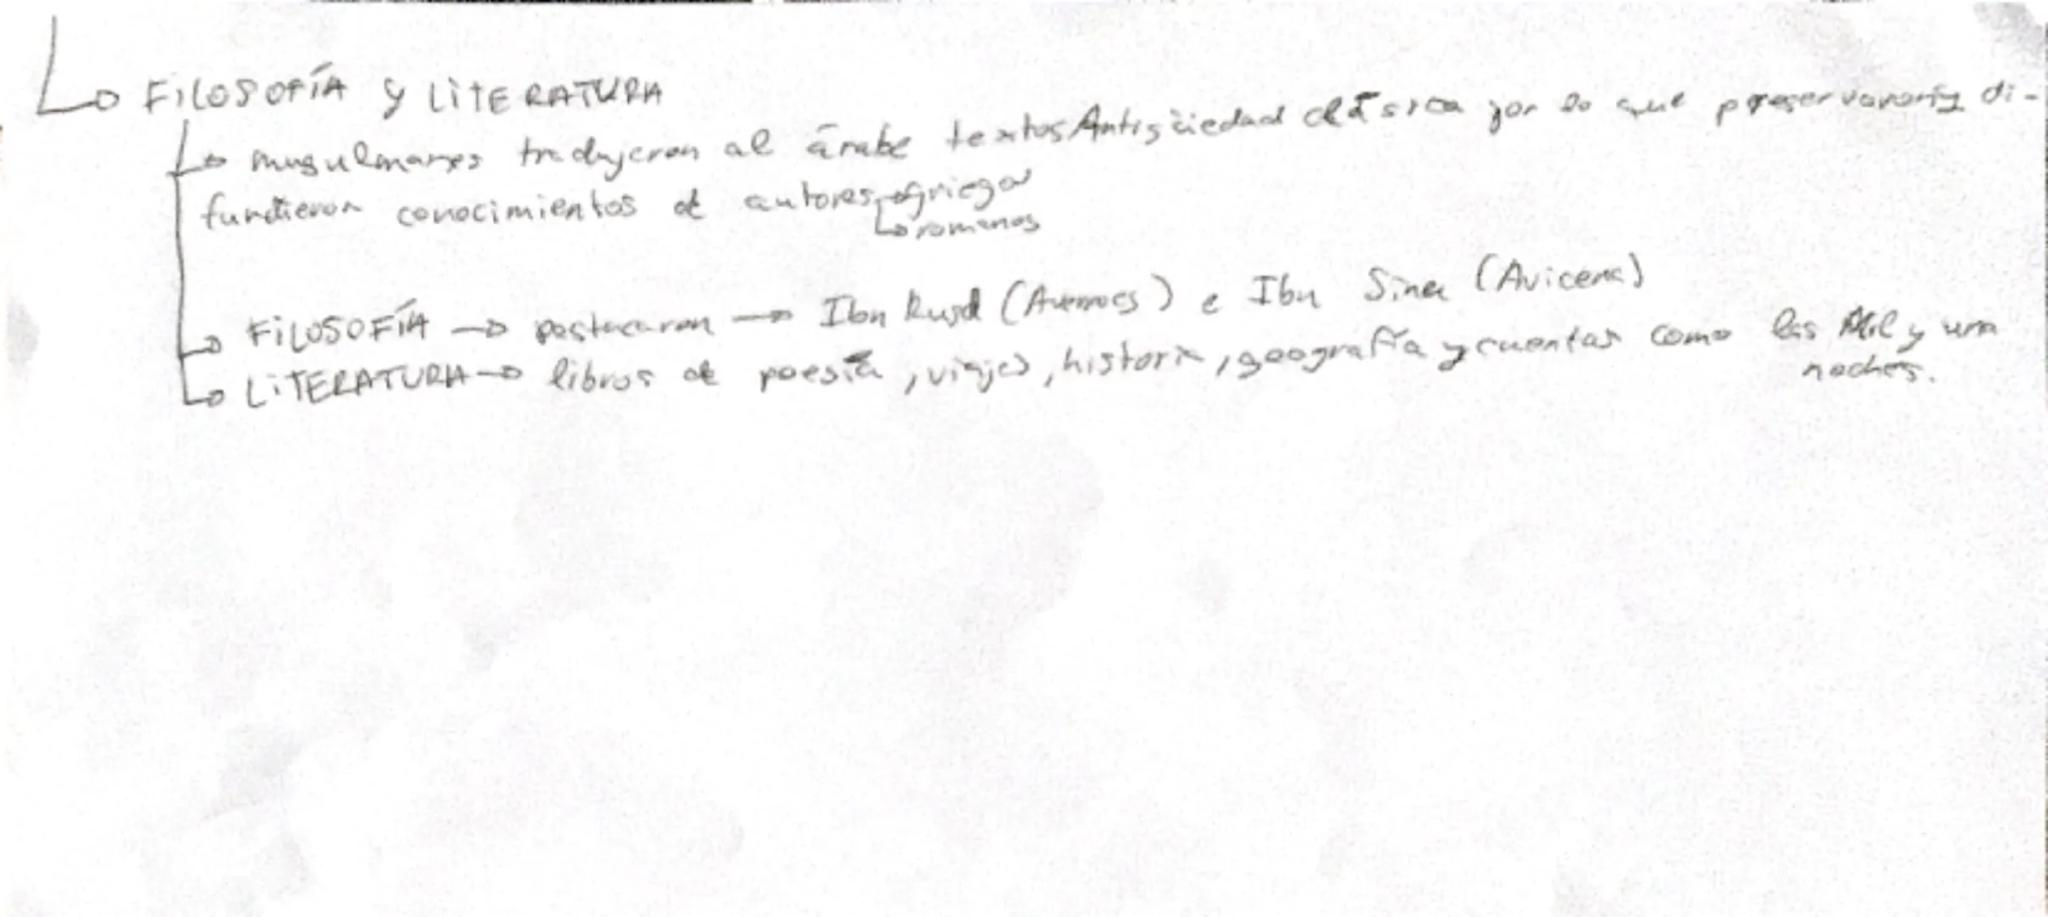 FILOSOFÍA y LITERATURA
musulmanes tradujeron al árabe textos Antigüedad clásica por lo que preservaron y di-
fundieron conocimientos de autores griegos
romanos
FILOSOFÍA → destacaron → Ibn Rusd (Averroes) e Ibn Sina (Avicena)
LITERATURA → libros de poesía, viajes, historia, geografía y cuentos como las Mil y una
noches.